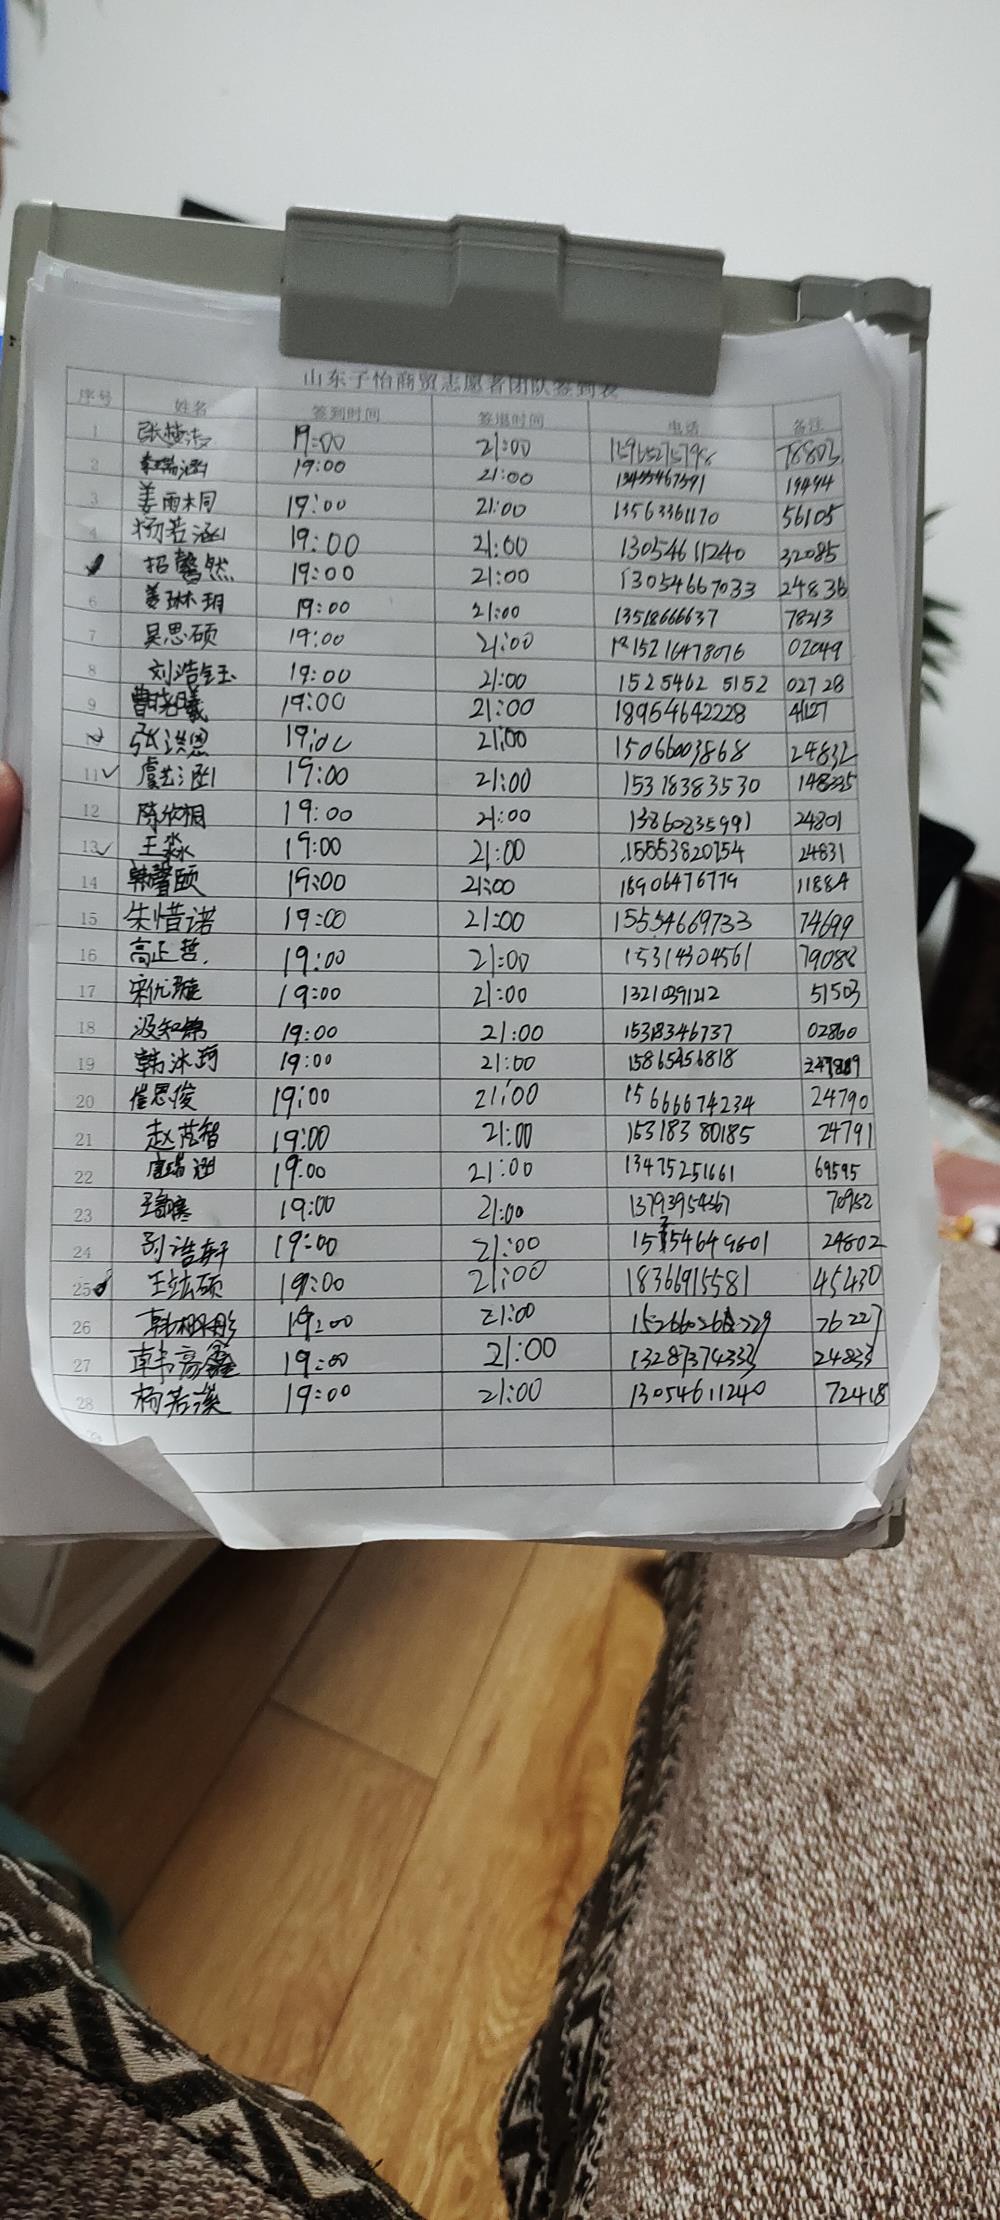 山东子怡商贸志愿者团队签到表
序号 姓名 签到时间 签退时间 电话 备注
1 19:00 21:00 78803
2 李瑞涵 19:00 21:00 13455467591 19494
3 姜雨木同 19:00 21:00 13563361170 56105
4 杨若涵 19:00 21:00 13054611240 32085
招馨然 19:00 21:00 13054667033 24836
6 姜琳玥 19:00 21:00 13518666637 78213
7 吴思硕 19:00 21:00 15216478076 02049
8 刘浩钰 19:00 21:00 1525462 5152 02728
9 曹晓曦 19:00 21:00 18954642228 41127
张洪恩 19:00 21:00 15066003868 24832
11 虞艺涵 19:00 21:00 15318383530
12 陈欣桐 19:00 21:00 13860835991 24801
13 王淼 19:00 21:00 15553820754 24831
14 韩馨颐 19:00 21:00 18906476779 11884
15 朱惜诺 19:00 21:00 15554669733 74699
16 高正哲. 19:00 21:00 15314304561 79088
17 宋优璇 19:00 21:00 13210391212 51503
18 19:00 21:00 15318346737 02860
19 韩冰珂 19:00 21:00 15865456818
20 崔恩俊 19:00 21:00 15666674234 24790
21 赵苾智 19:00 21:00 15318380185 24791
22 唐瑞涵 19:00 21:00 13475251661 69595
23 19:00 21:00 13793954367 70952
24 孙浩轩 19:00 21:00 24802
25 王竑硕 19:00 21:00 18366915581 45430
26 19:00 21:00 76227
27 韩高鑫 19:00 21:00 13287374333 24833
28 杨若溪 19:00 21:00 13054611240 72418